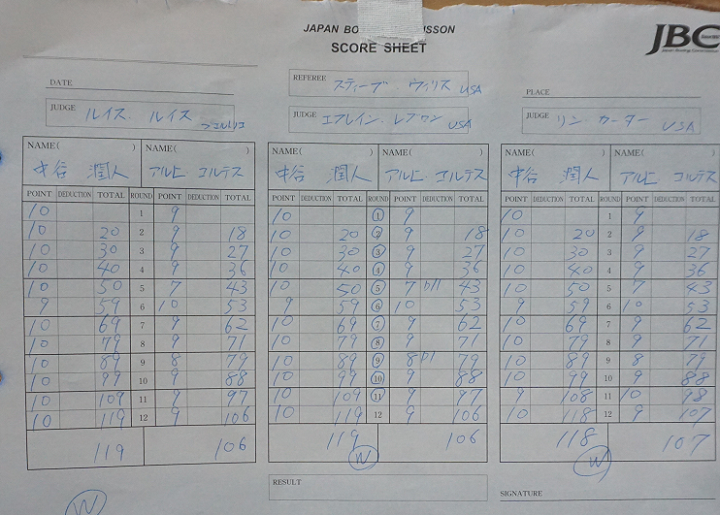 JAPAN BO SSON
SCORE SHEET
JBC
DATE
REFEREE スティーブ・ウィリス USA
PLACE
JUDGE ルイス・ルイス
JUDGE エフレイン・レブロン USA
JUDGE リン カーター USA
NAME( ) NAME( ) NAME( ) NAME( ) NAME( ) NAME( )
中谷 潤人 アルビ コルテス 中谷 潤人 アルビ コルテス 中谷 潤人 アルビ コルテス
POINT DEDUCTION TOTAL ROUND POINT DEDUCTION TOTAL POINT DEDUCTION TOTAL ROUND POINT DEDUCTION TOTAL POINT DEDUCTION TOTAL ROUND POINT DEDUCTION TOTAL
10 1 9 10 1 9 10 1 9
10 20 2 9 18 10 20 2 9 18 10 20 2 9 18
10 30 3 9 27 10 30 3 9 27 10 30 3 9 27
10 40 4 9 36 10 40 4 9 36 10 40 4 9 36
10 50 5 7 43 10 50 5 7 43 10 50 5 7 43
9 59 6 10 53 9 59 6 10 53 9 59 6 10 53
10 69 7 9 62 10 69 7 9 62 10 69 7 9 62
10 79 8 9 71 10 79 8 9 71 10 79 8 9 71
10 89 9 8 79 10 89 9 8 79 10 89 9 8 79
10 99 10 9 88 10 99 10 9 88 10 99 10 9 88
10 109 11 9 97 10 109 11 9 97 9 108 11 10 98
10 119 12 9 106 10 119 12 9 106 10 118 12 9 107
119 106 119 106 118 107
W W W
RESULT
SIGNATURE